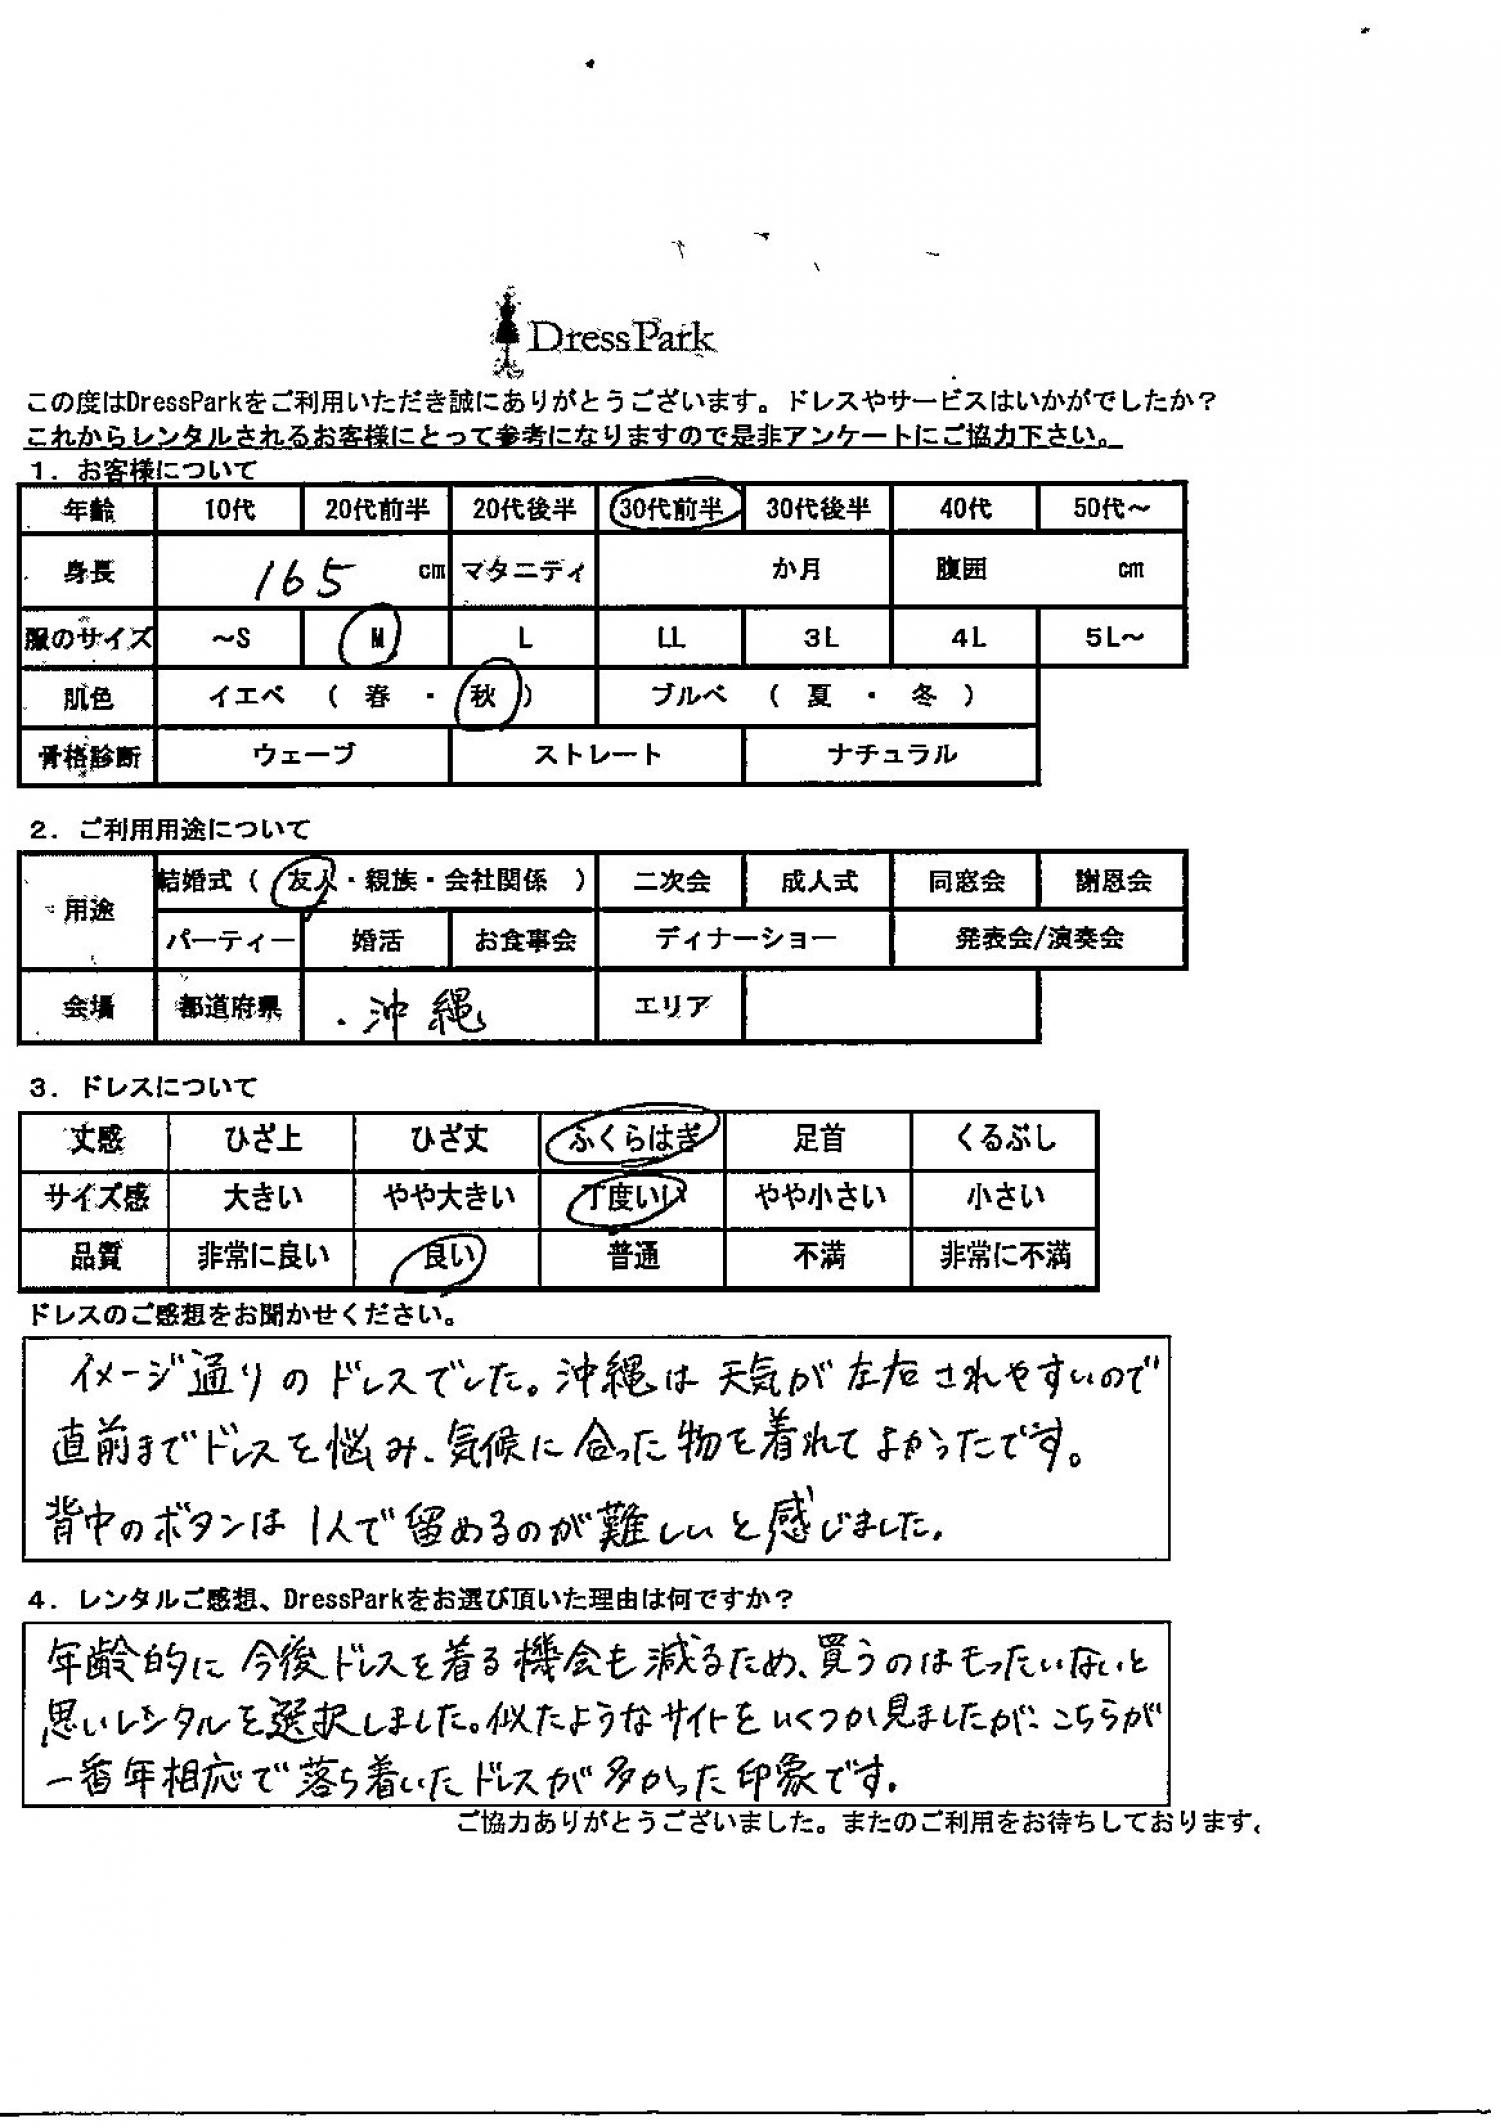 DressPark
この度はDressParkをご利用いただき誠にありがとうございます。ドレスやサービスはいかがでしたか？
これからレンタルされるお客様にとって参考になりますので是非アンケートにご協力下さい。
１．お客様について
年齢 10代 20代前半 20代後半 30代前半 30代後半 40代 50代～
身長 165 cm マタニティ か月 腹囲 cm
服のサイズ ～S M L LL 3L 4L 5L～
肌色 イエベ （ 春 ・ 秋 ） ブルベ （ 夏 ・ 冬 ）
骨格診断 ウェーブ ストレート ナチュラル
２．ご利用用途について
用途 結婚式（ 友人・親族・会社関係 ） 二次会 成人式 同窓会 謝恩会
パーティー 婚活 お食事会 ディナーショー 発表会/演奏会
会場 都道府県 沖縄 エリア
３．ドレスについて
丈感 ひざ上 ひざ丈 ふくらはぎ 足首 くるぶし
サイズ感 大きい やや大きい 丁度いい やや小さい 小さい
品質 非常に良い 良い 普通 不満 非常に不満
ドレスのご感想をお聞かせください。
イメージ通りのドレスでした。沖縄は天気が左右されやすいので
直前までドレスを悩み、気候に合った物を着れてよかったです。
背中のボタンは1人で留めるのが難しいと感じました。
４．レンタルご感想、DressParkをお選び頂いた理由は何ですか？
年齢的に今後ドレスを着る機会も減るため、買うのはもったいないと
思いレンタルを選択しました。似たようなサイトをいくつか見ましたが、こちらが
一番年相応で落ち着いたドレスが多かった印象です。
ご協力ありがとうございました。またのご利用をお待ちしております。